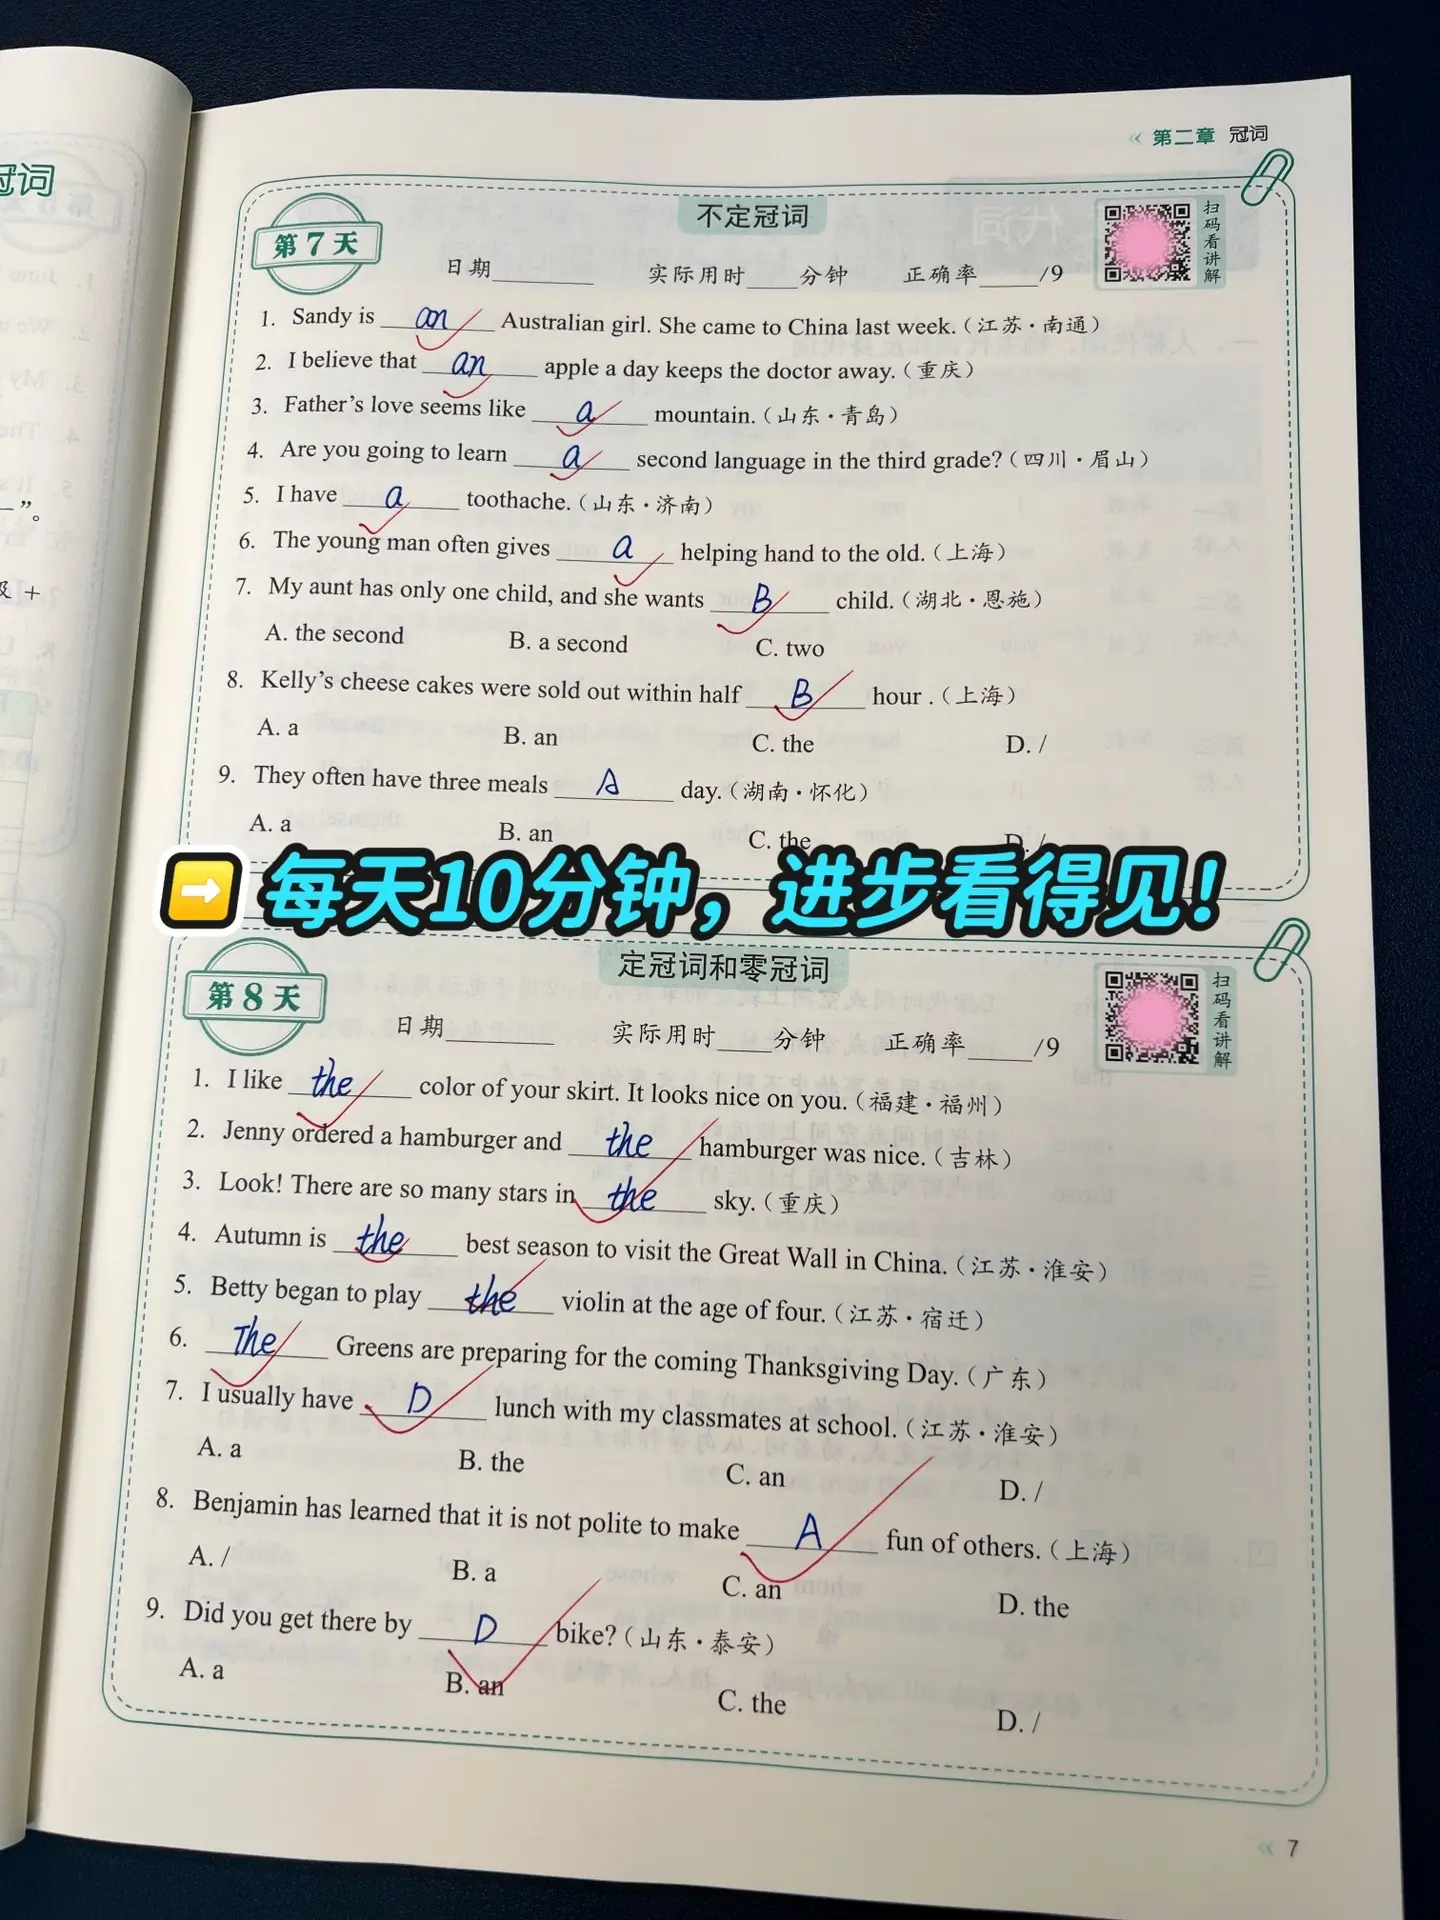 冠词
”。
级 +
« 第二章 冠词
不定冠词
第7天
扫码看讲解
日期______ 实际用时___分钟 正确率____/9
1. Sandy is an Australian girl. She came to China last week.(江苏·南通)
2. I believe that an apple a day keeps the doctor away.(重庆)
3. Father’s love seems like a mountain.(山东·青岛)
4. Are you going to learn a second language in the third grade?(四川·眉山)
5. I have a toothache.(山东·济南)
6. The young man often gives a helping hand to the old.(上海)
7. My aunt has only one child, and she wants B child.(湖北·恩施)
A. the second B. a second C. two
8. Kelly’s cheese cakes were sold out within half B hour .(上海)
A. a B. an C. the D. /
9. They often have three meals A day.(湖南·怀化)
A. a B. an C. the D. /
➡ 每天10分钟，进步看得见!
定冠词和零冠词
第8天
扫码看讲解
日期______ 实际用时___分钟 正确率____/9
1. I like the color of your skirt. It looks nice on you.(福建·福州)
2. Jenny ordered a hamburger and the hamburger was nice.(吉林)
3. Look! There are so many stars in the sky.(重庆)
4. Autumn is the best season to visit the Great Wall in China.(江苏·淮安)
5. Betty began to play the violin at the age of four.(江苏·宿迁)
6. The Greens are preparing for the coming Thanksgiving Day.(广东)
7. I usually have D lunch with my classmates at school.(江苏·淮安)
A. a B. the C. an D. /
8. Benjamin has learned that it is not polite to make A fun of others.(上海)
A. / B. a C. an D. the
9. Did you get there by D bike?(山东·泰安)
A. a B. an C. the D. /
« 7